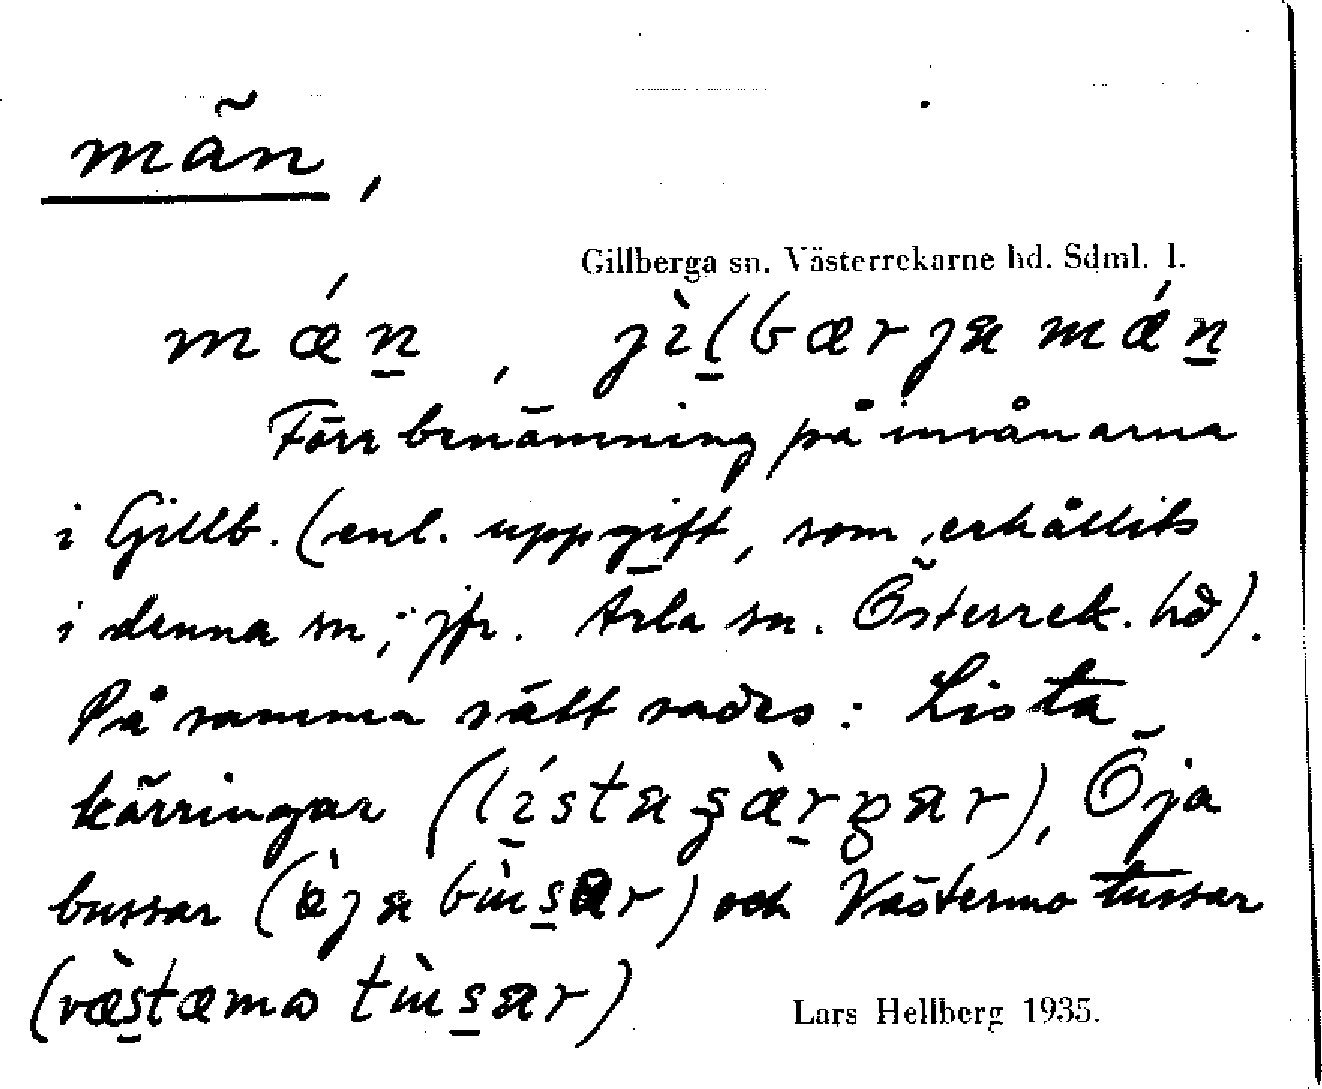 män,
Gillberga sn. Västerrekarne hd. Sdml. l.
mǽn̲, jìl̲bærjamǽn̲
Förr benämning på invånarna
i Gillb. (enl. uppgift, som erhållits
i denna sn; jfr. Ärla sn. Österrek. hd).
På samma sätt sades: Lista
kärringar (lístagàrgar), Öja
bussar (ja bùs̲ar) och Västermo tussar
(væ̀s̲tæmo tùs̲ar)
Lars Hellberg 1935.